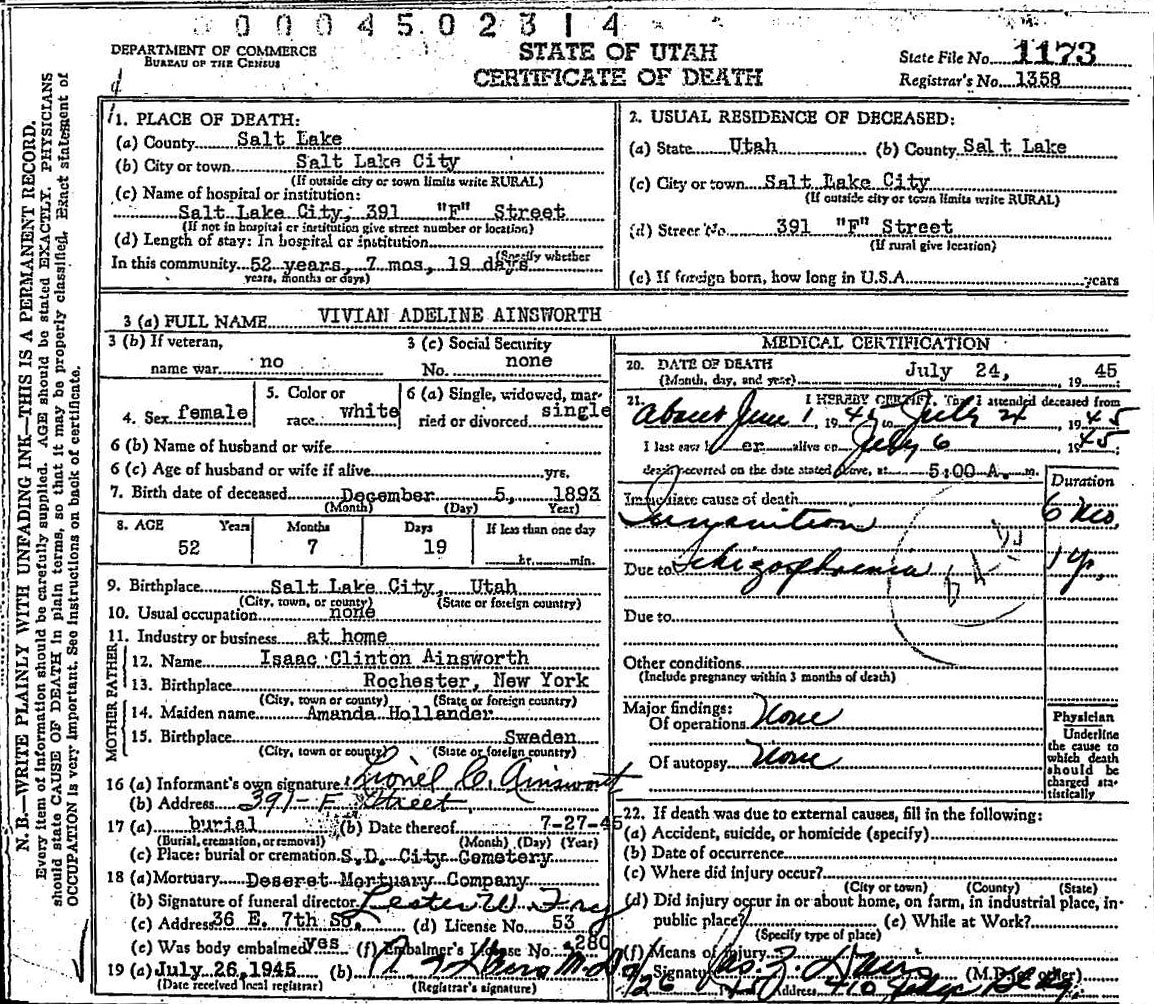 0004502314
DEPARTMENT OF COMMERCE
BUREAU OF THE CENSUS
STATE OF UTAH
CERTIFICATE OF DEATH
State File No. 1173
Registrar's No. 1358
N. B.—WRITE PLAINLY WITH UNFADING INK—THIS IS A PERMANENT RECORD.
Every item of information should be carefully supplied. AGE should be stated EXACTLY. PHYSICIANS
should state CAUSE OF DEATH in plain terms, so that it may be properly classified. Exact statement of
OCCUPATION is very important. See instructions on back of certificate.
1. PLACE OF DEATH:
(a) County Salt Lake
(b) City or town Salt Lake City
(If outside city or town limits write RURAL)
(c) Name of hospital or institution:
Salt Lake City, 391 "F" Street
(If not in hospital or institution give street number or location)
(d) Length of stay: In hospital or institution
(Specify whether
In this community 52 years, 7 mos, 19 days
years, months or days)
2. USUAL RESIDENCE OF DECEASED:
(a) State Utah (b) County Salt Lake
(c) City or town Salt Lake City
(If outside city or town limits write RURAL)
(d) Street No. 391 "F" Street
(If rural give location)
(e) If foreign born, how long in U.S.A. years
3 (a) FULL NAME VIVIAN ADELINE AINSWORTH
3 (b) If veteran,
name war no
3 (c) Social Security
No. none
4. Sex female
5. Color or
race white
6 (a) Single, widowed, mar-
ried or divorced single
6 (b) Name of husband or wife
6 (c) Age of husband or wife if alive yrs.
7. Birth date of deceased December 5, 1893
(Month) (Day) (Year)
8. AGE Years Months Days If less than one day
52 7 19 hr. min.
9. Birthplace Salt Lake City, Utah
(City, town, or county) (State or foreign country)
10. Usual occupation none
11. Industry or business at home
FATHER
12. Name Isaac Clinton Ainsworth
13. Birthplace Rochester, New York
(City, town or county) (State or foreign country)
MOTHER
14. Maiden name Amanda Hollander
15. Birthplace Sweden
(City, town or county) (State or foreign country)
16 (a) Informant's own signature Lionel C. Ainsworth
(b) Address 391-F Street
17 (a) burial (b) Date thereof 7-27-45
(Burial, cremation, or removal) (Month) (Day) (Year)
(c) Place: burial or cremation S.D. City Cemetery
18 (a) Mortuary Deseret Mortuary Company
(b) Signature of funeral director Lester W.
(c) Address 36 E. 7th So. (d) License No. 53
(e) Was body embalmed yes (f) Embalmer's License No. 280
19 (a) July 26, 1945 (b)
(Date received local registrar) (Registrar's signature)
MEDICAL CERTIFICATION
20. DATE OF DEATH
(Month, day, and year) July 24, 19 45
21. I HEREBY CERTIFY, That I attended deceased from
About June 1 1945 to July 24, 1945
I last saw h er alive on July 6 1945
death occurred on the date stated above, at 5:00 A. m.
Duration
Immediate cause of death
Inanition 6 Mo.
Due to Schizophrenia 1 yr.
Due to
Other conditions
(Include pregnancy within 3 months of death)
Major findings:
Of operations None
Of autopsy None
Physician
Underline
the cause to
which death
should be
charged sta-
tistically
22. If death was due to external causes, fill in the following:
(a) Accident, suicide, or homicide (specify)
(b) Date of occurrence
(c) Where did injury occur?
(City or town) (County) (State)
(d) Did injury occur in or about home, on farm, in industrial place, in
public place? (e) While at Work?
(Specify type of place)
(f) Means of injury
Signature (M.D. or other)
Address 410 Judge Bldg.